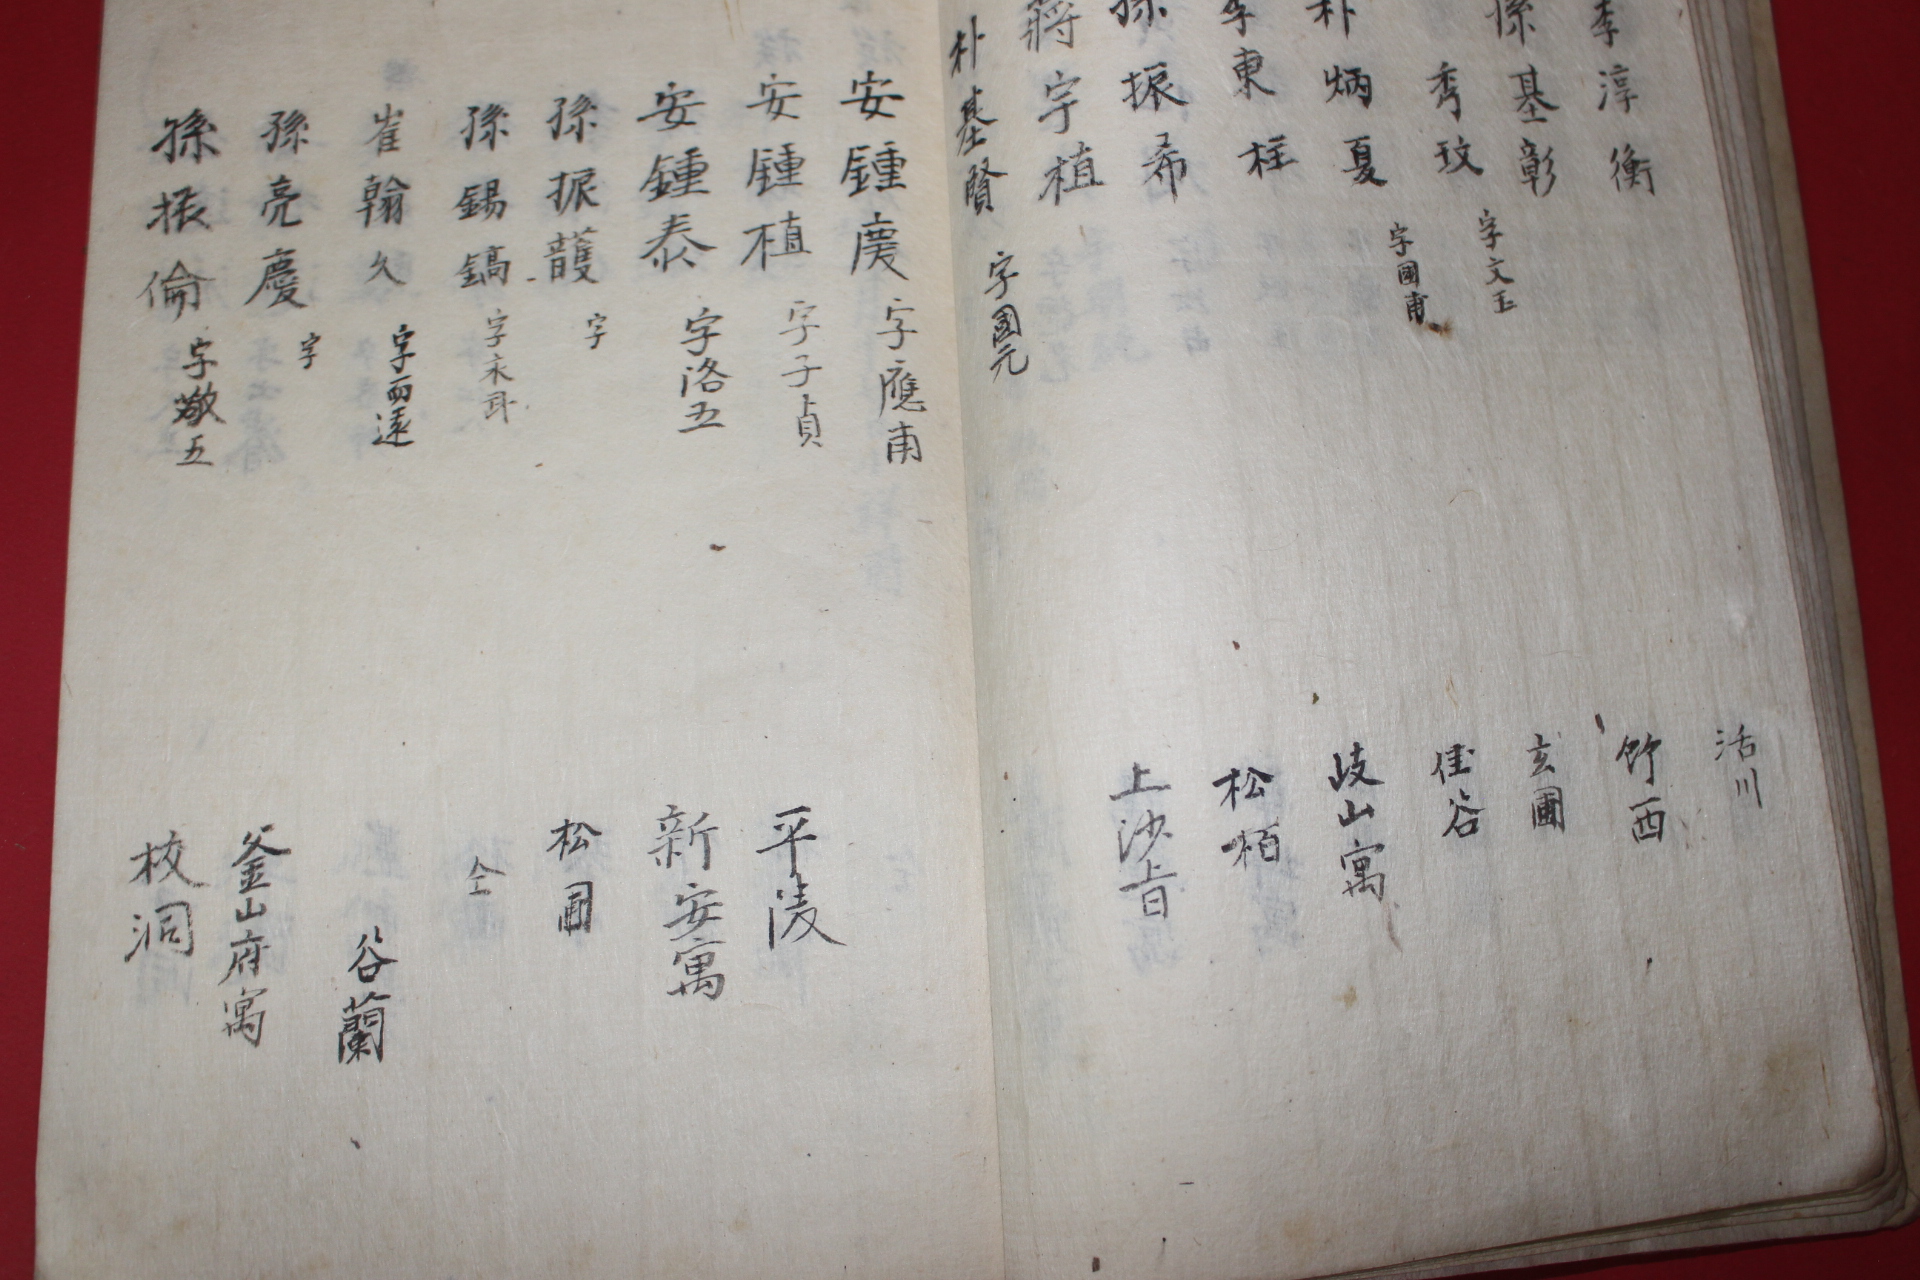 李淳衡 活川
孫基彰 竹西
秀玟 字文玉 玄圃
朴炳夏 字國甫 佳谷
李東柱 岐山寓
孫振希 松栢
蔣宇植 上沙旨
朴基賢 字國元
安鍾慶 字應甫
安鍾植 字子貞 平陵
安鍾泰 字洛五 新安寓
孫振頀 字 松圃
孫錫鎬 字 仝
崔翰久 字而遠 谷蘭
孫亮慶 字 釜山府寓
孫振倫 字敬五 校洞